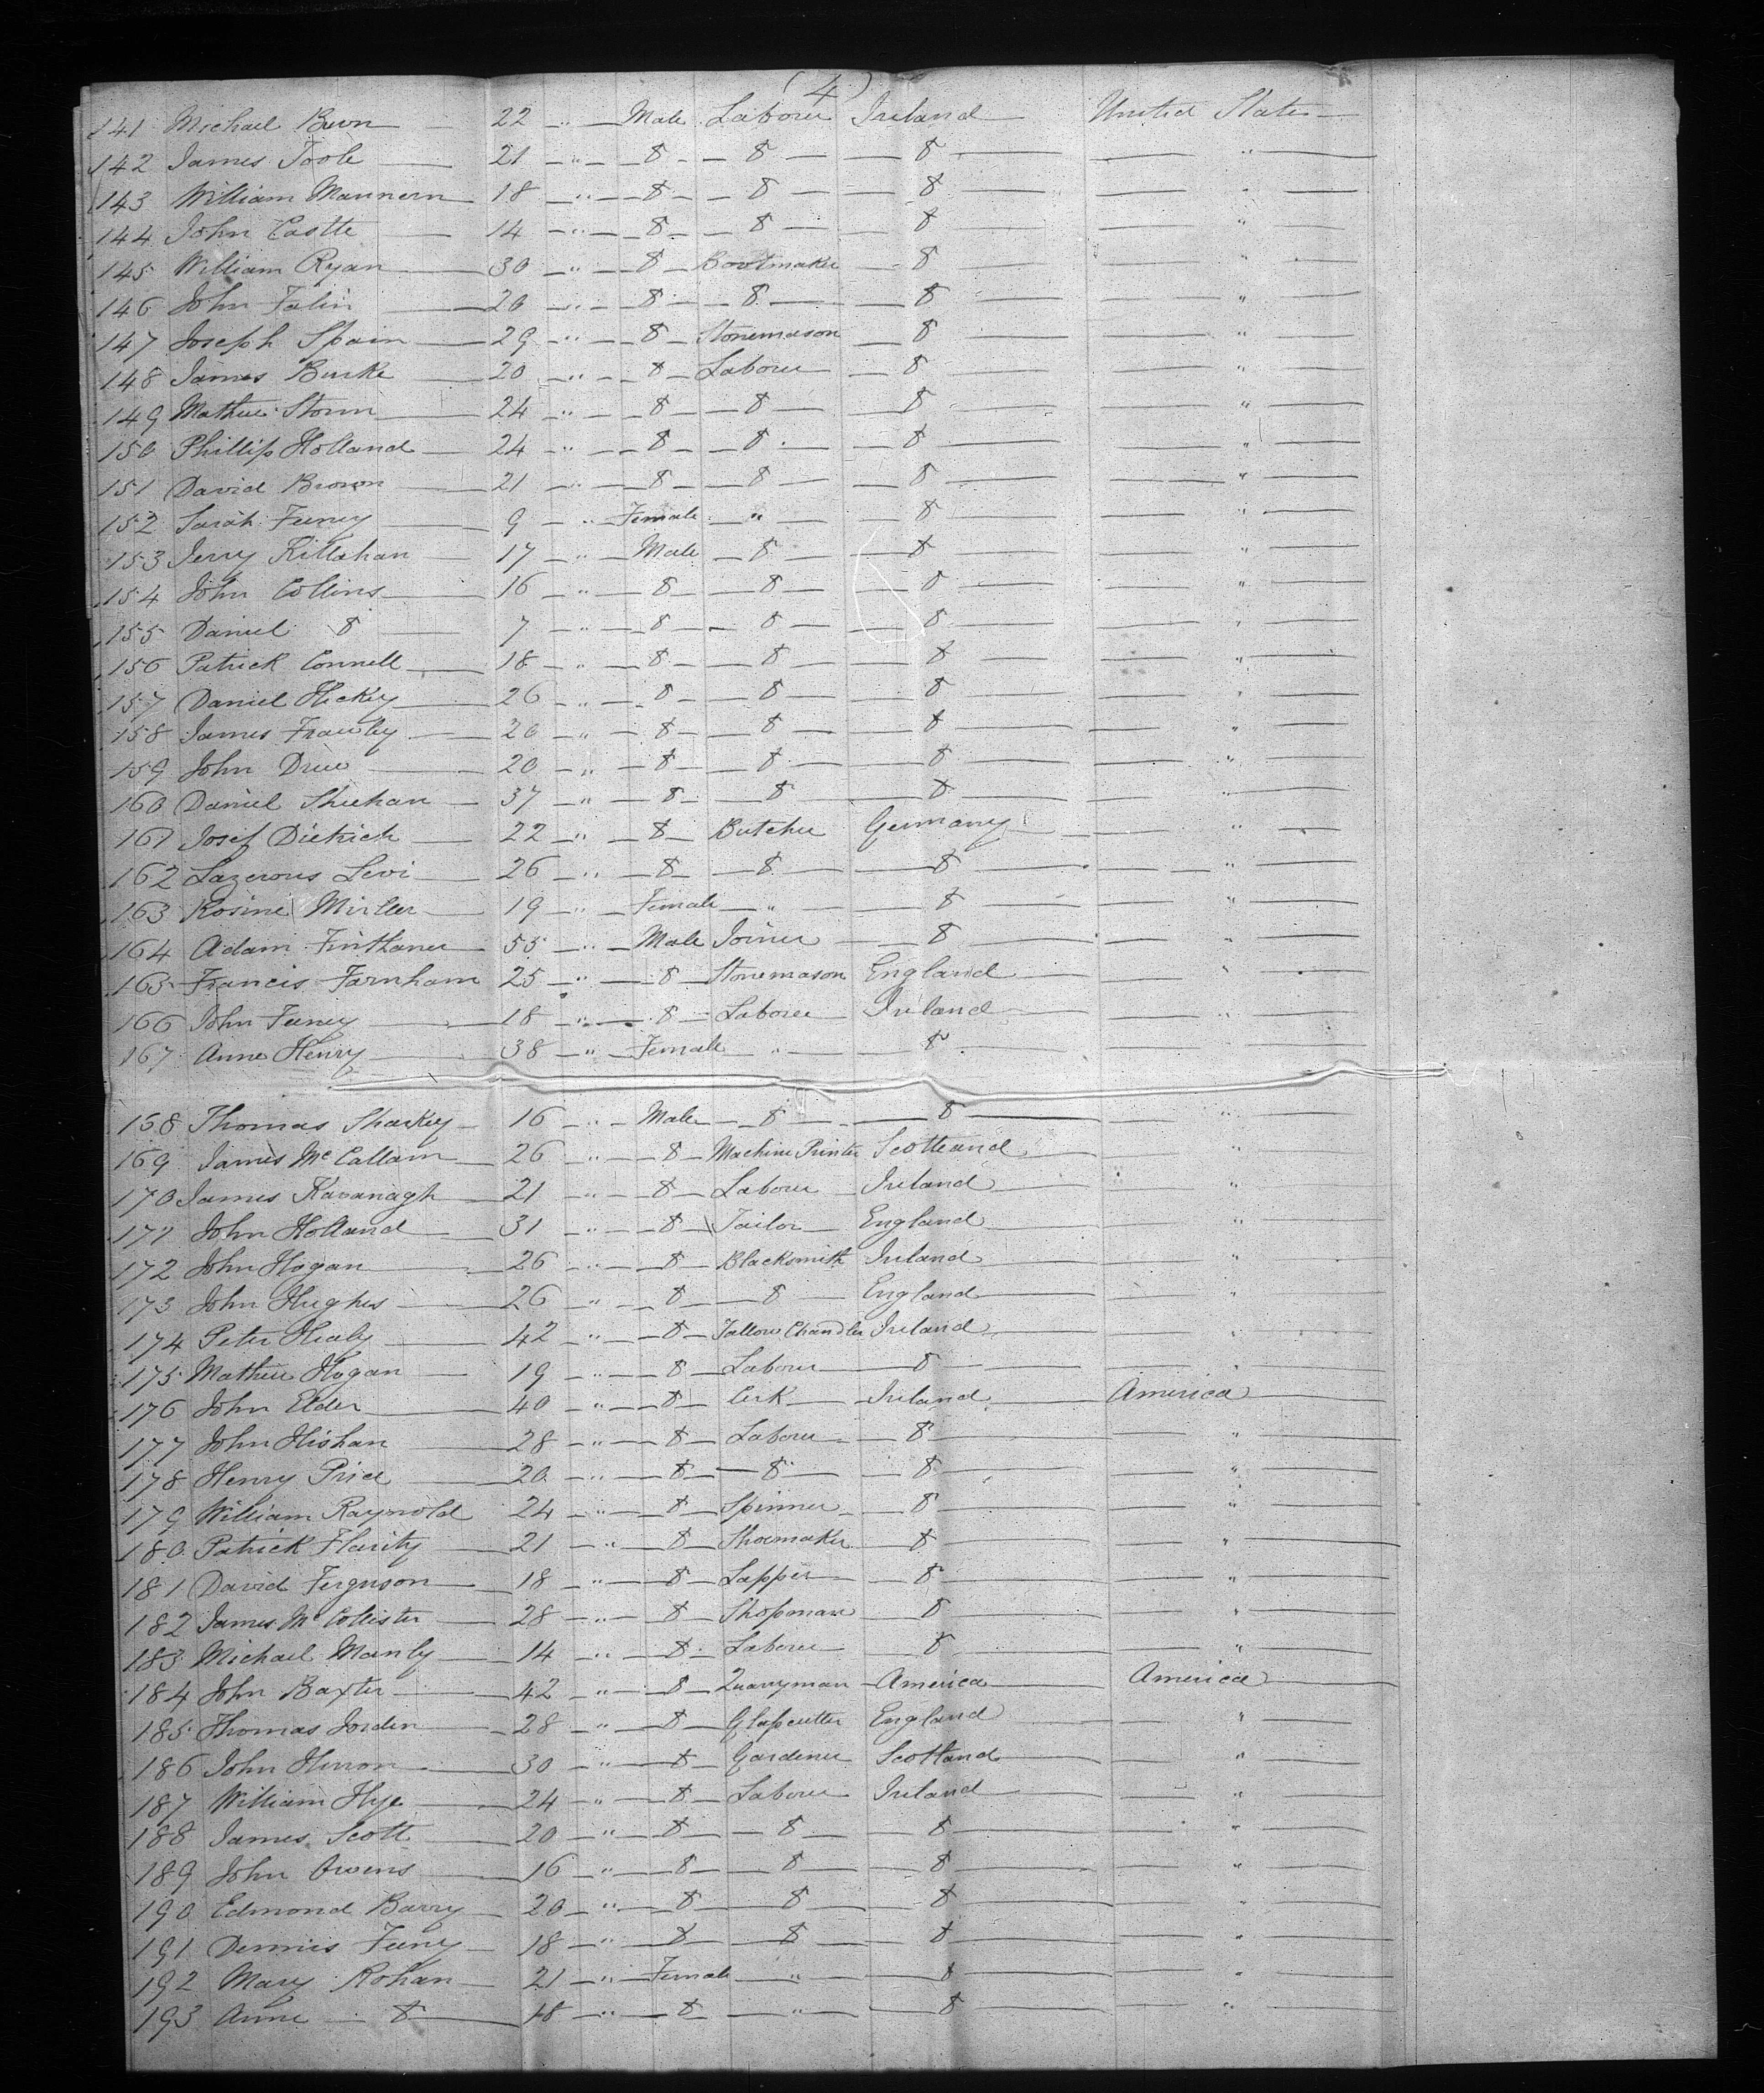 (4)
141 Michael Bwn 22 " Male Laborer Ireland United States
142 James Toole 21 " 8 8 8 "
143 William Mannern 18 " 8 8 8 "
144 John Castle 14 " 8 8 8 "
145 William Ryan 30 " 8 Bootmaker 8 "
146 John Falin 20 " 8 8 8 "
147 Joseph Spain 29 " 8 Stonemason 8 "
148 James Burke 20 " 8 Laborer 8 "
149 Mathew Storm 24 " 8 8 8 "
150 Phillip Holland 24 " 8 8 8 "
151 David Brown 21 " 8 8 8 "
152 Sarah Feeney 9 " Female " 8 "
153 Jerry Killahan 17 " Male 8 8 "
154 John Collins 16 " 8 8 8 "
155 Daniel 8 7 " 8 8 8 "
156 Patrick Connell 18 " 8 8 8 "
157 Daniel Hickey 26 " 8 8 8 "
158 James Frawley 20 " 8 8 8 "
159 John Drew 20 " 8 8 8 "
160 Daniel Sheehan 37 " 8 8 8 "
161 Josef Dietrich 22 " 8 Butcher Germany "
162 Lazerous Levi 26 " 8 8 8 "
163 Rosine 19 " Female " 8 "
164 Adam 55 " Male Joiner 8 "
165 Francis Farnham 25 " 8 Stonemason England "
166 John Feeney 18 " 8 Laborer Ireland "
167 Anne Henry 38 " Female " 8 "
168 Thomas Sharkey 16 " Male 8 8 "
169 James McCallam 26 " 8 Machine Printer Scotland "
170 James Kavanagh 21 " 8 Laborer Ireland "
171 John Holland 31 " 8 Tailor England "
172 John Hogan 26 " 8 Blacksmith Ireland "
173 John Hughes 26 " 8 8 England "
174 Peter Healy 42 " 8 Tallow Chandler Ireland "
175 Mathew Hogan 19 " 8 Laborer 8 "
176 John Elder 40 " 8 Clerk Ireland America
177 John Hishan 28 " 8 Laborer 8 "
178 Henry Price 20 " 8 8 8 "
179 William Raynold 24 " 8 Spinner 8 "
180 Patrick Flarity 21 " 8 Shoemaker 8 "
181 David Ferguson 18 " 8 Lapper 8 "
182 James McCollister 28 " 8 Shopman 8 "
183 Michael Manly 14 " 8 Laborer 8 "
184 John Baxter 42 " 8 Quarryman America America
185 Thomas Jorden 28 " 8 Glasscutter England "
186 John Herron 30 " 8 Gardener Scotland "
187 William Hye 24 " 8 Laborer Ireland "
188 James Scott 20 " 8 8 8 "
189 John Owens 16 " 8 8 8 "
190 Edmond Barry 20 " 8 8 8 "
191 Dennis Feeny 18 " 8 8 8 "
192 Mary Rohan 21 " Female " 8 "
193 Anne 8 18 " 8 " 8 "